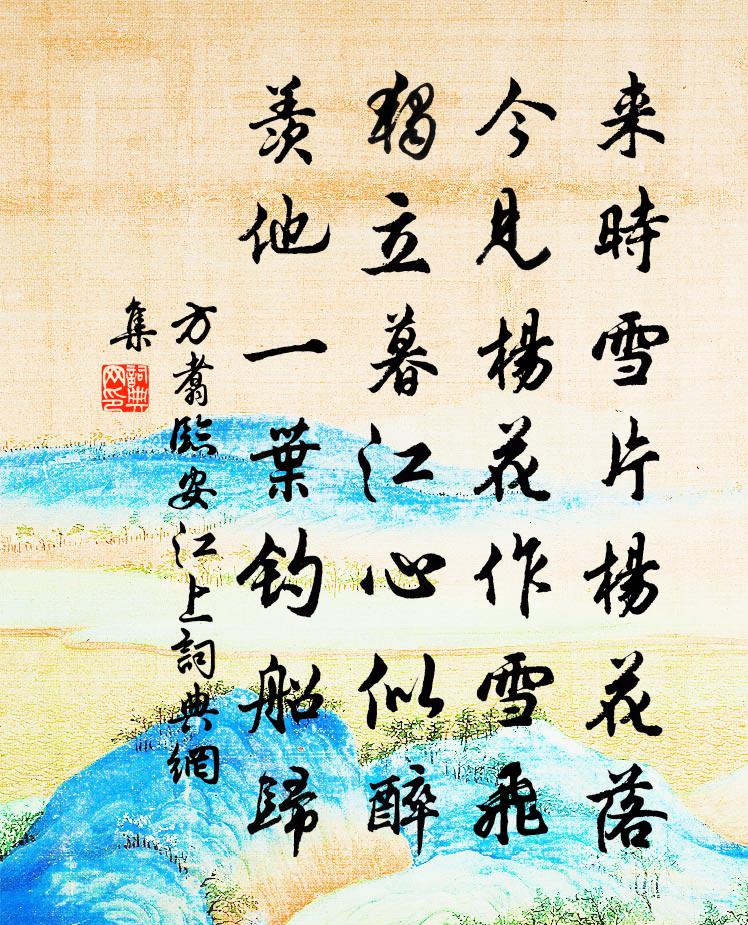 来時雪片楊花落
今見楊花作雪飛
獨立暮江心似醉
羨他一葉釣船歸
方翥臨安江上詞典網
集
詞典
网印